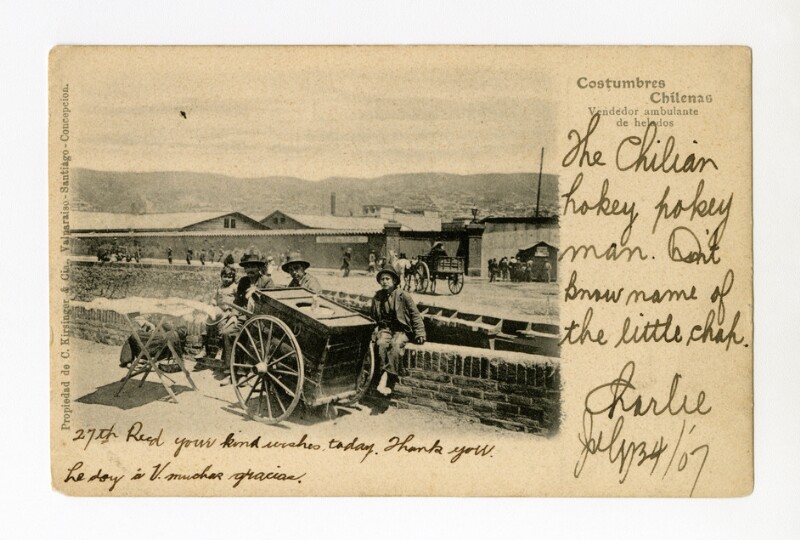 Costumbres
Chilenas
Vendedor ambulante
de helados
The Chilian
hokey pokey
man. Don't
know name of
the little chap.
Charlie
27th Recd your kind wishes today. Thank you.
Le doy á V. muchas gracias.
Propiedad de C. Kirsinger & Cia., Valparaiso - Santiago - Concepcion.